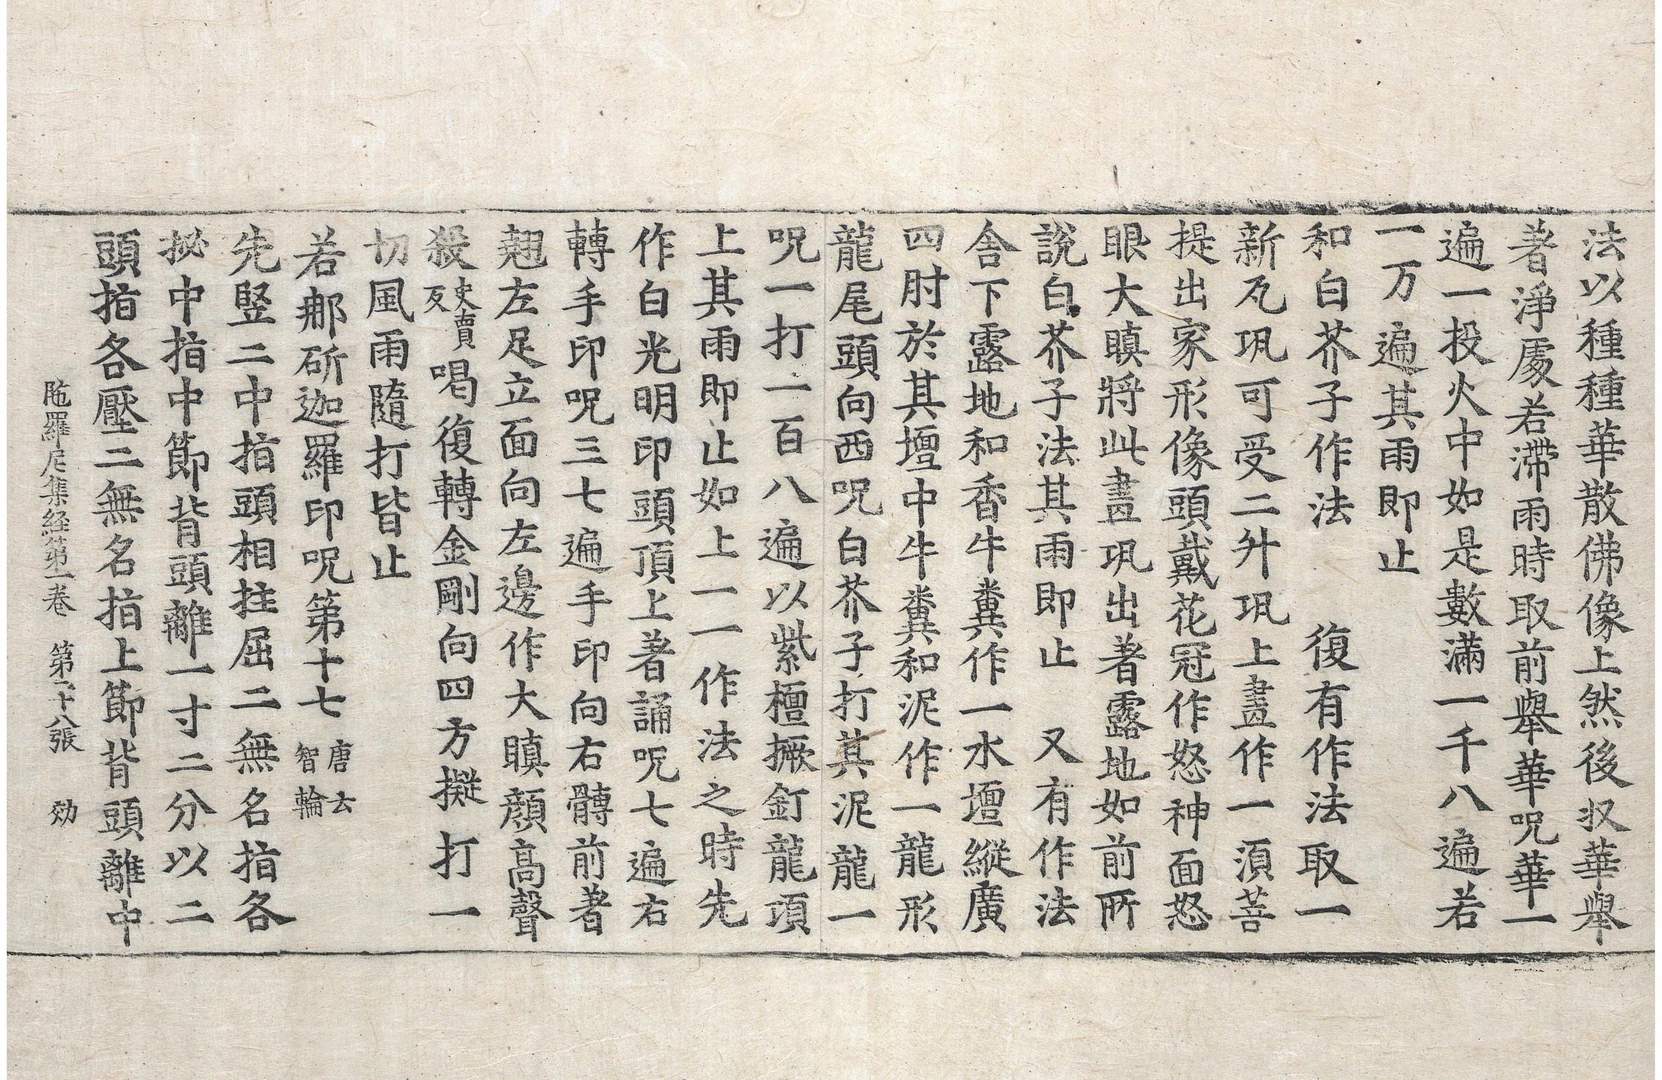 法以種種華散佛像上然後収華舉
著淨處若滯雨時取前舉華呪華一
遍一投火中如是數滿一千八遍若
一万遍其雨即止
和白芥子作法　復有作法取一
新瓦瓨可受二升瓨上畫作一湏菩
提出家形像頭戴花冠作怒神面怒
眼大瞋將此畫瓨出著露地如前所
說白芥子法其雨即止　又有作法
舍下露地和香牛糞作一水壇縱廣
四肘於其壇中牛糞和泥作一龍形
龍尾頭向西呪白芥子打其泥龍一
呪一打一百八遍以紫檀撅釘龍項
上其雨即止如上一一作法之時先
作白光明印頭頂上著誦呪七遍右
轉手印呪三七遍手印向右髆前著
翹左足立面向左邊作大瞋顏高聲
殺史賣反喝復轉金剛向四方擬打一
切風雨隨打皆止
若郍斫迦羅印呪第十七唐云智輪
先竪二中指頭相拄屈二無名指各
㧙中指中節背頭離一寸二分以二
頭指各壓二無名指上節背頭離中
陁羅尼集経第一卷　第二十八張　効